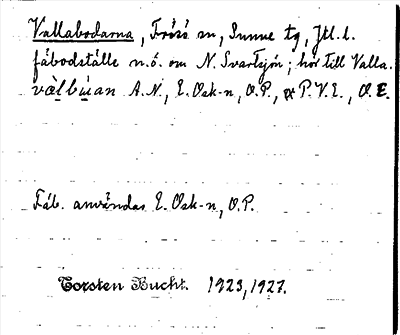 Vallabodarna, Frösö sn, Sunne tg, Jtl. l.
fäbodställe n.ö. om N. Svartsjön; hör till Valla.
vàlbùan A.N., E. Osk-n, O.P., P.V.E., O.E.
Fäb. användas E. Osk-n, O.P.
Torsten Bucht. 1923, 1927.